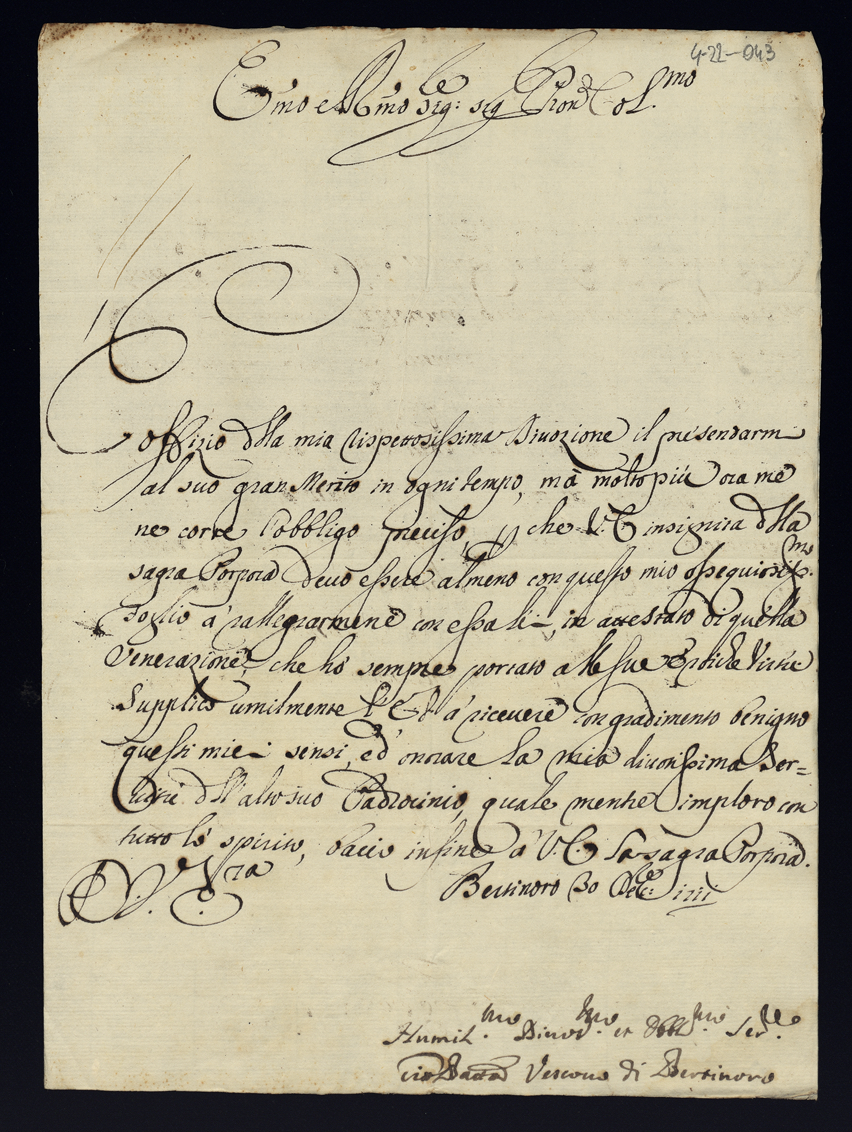 4-22-043
Emo e Rmo sig:re sig Pron Col.mo
offizio della mia rispettosissima Divozione il presentarmi
al suo gran Merito in ogni tempo, mà molto più ora me
ne corre l'obbligo preciso, che V.E. insignita della
sagra Porpora devo essere almeno con questo mio ossequiosiss.mo
foglio à rallegrarmene con essa lei, in attestato di quella
Venerazione, che hò sempre portato alle sue eroiche Virtù
Supplico umilmente l'E.V. à ricevere con gradimento benigno
questi miei sensi, ed' onorare la mia divotissima Ser=
vitù dell'alto suo Padrocinio, quale mentre imploro con
tutto lò spirito, bacio infine à V.E. la sagra Porpora.
Bertinoro 30 Dece: 1711
Humil.mo Divot.mo et Obbl.mo Ser.re
Gio Batta Vescovo di Bertinoro